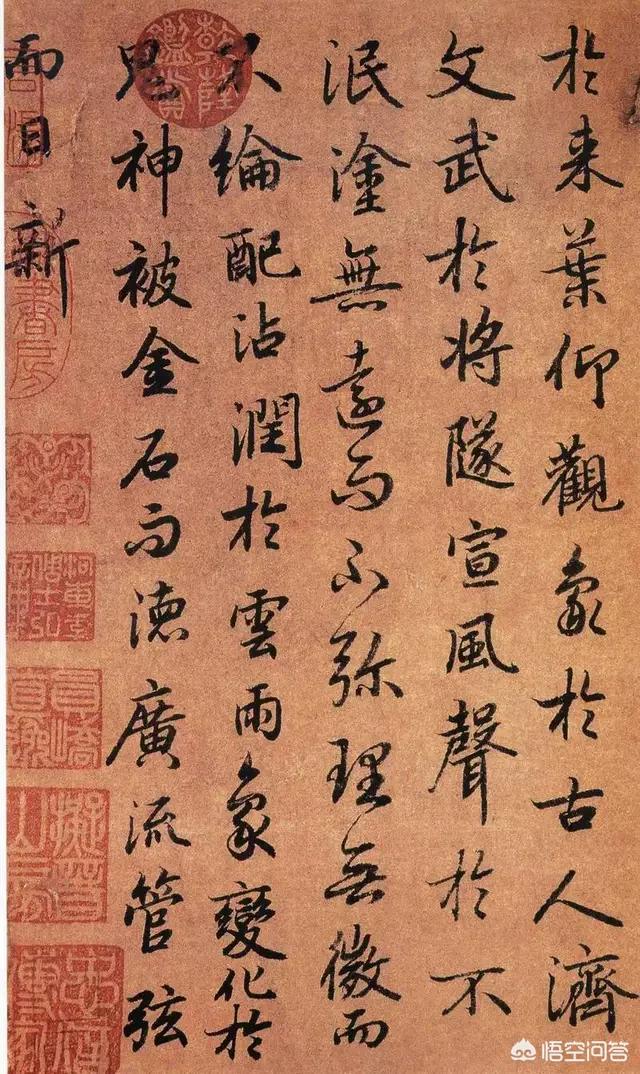 於来葉仰觀象於古人濟
文武於将隧宣風聲於不
泯塗無遠而不弥理無微而
不綸配沾潤於雲雨象變化於
鬼神被金石而徳廣流管弦
而日新
悟空问答